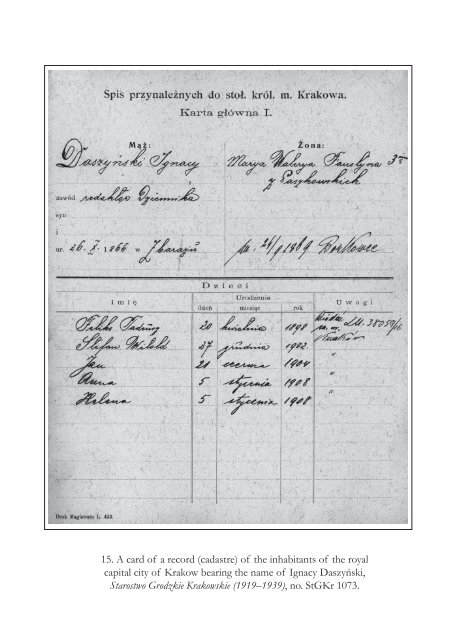 Spis przynależnych do stoł. król. m. Krakowa.
Karta główna I.
Mąż:
Daszyński Ignacy
zawód redaktor Dziennika
syn
i
ur. 26. X. 1866 w Zbarażu
Żona:
Marya Walerya Faustyna 3im
z Paszkowskich
ur. 24/9 1869 Borkowce
Dzieci
Imię Urodzenie Uwagi
dzień miesiąc rok
Feliks Tadeusz 20 kwietnia 1898
Stefan Witold 27 grudnia 1902 Kraków
Jan 21 czerwca 1904 "
Anna 5 stycznia 1908 "
Helena 5 stycznia 1908 "
Druk Magistratu L. 423.
15. A card of a record (cadastre) of the inhabitants of the royal
capital city of Krakow bearing the name of Ignacy Daszyński,
Starostwo Grodzkie Krakowskie (1919–1939), no. StGKr 1073.